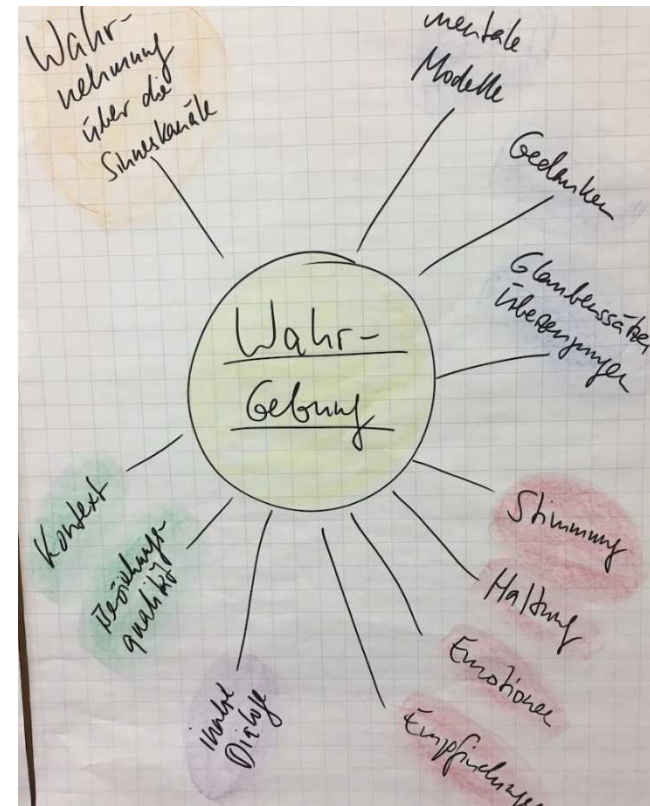 Wahr-
nehmung
über die
Sinneskanäle
mentale
Modelle
Gedanken
Glaubenssätze
Überzeugungen
Wahr-
Gebung
Stimmung
Haltung
Emotionen
Empfindungen
innere
Dialoge
Beziehungs-
qualität
Kontext